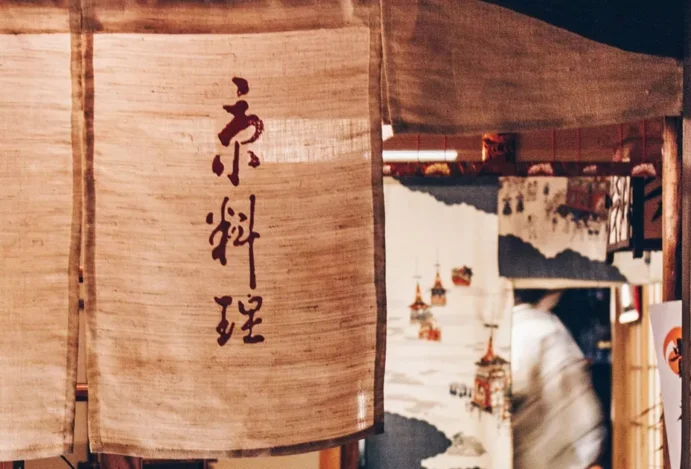 京料理